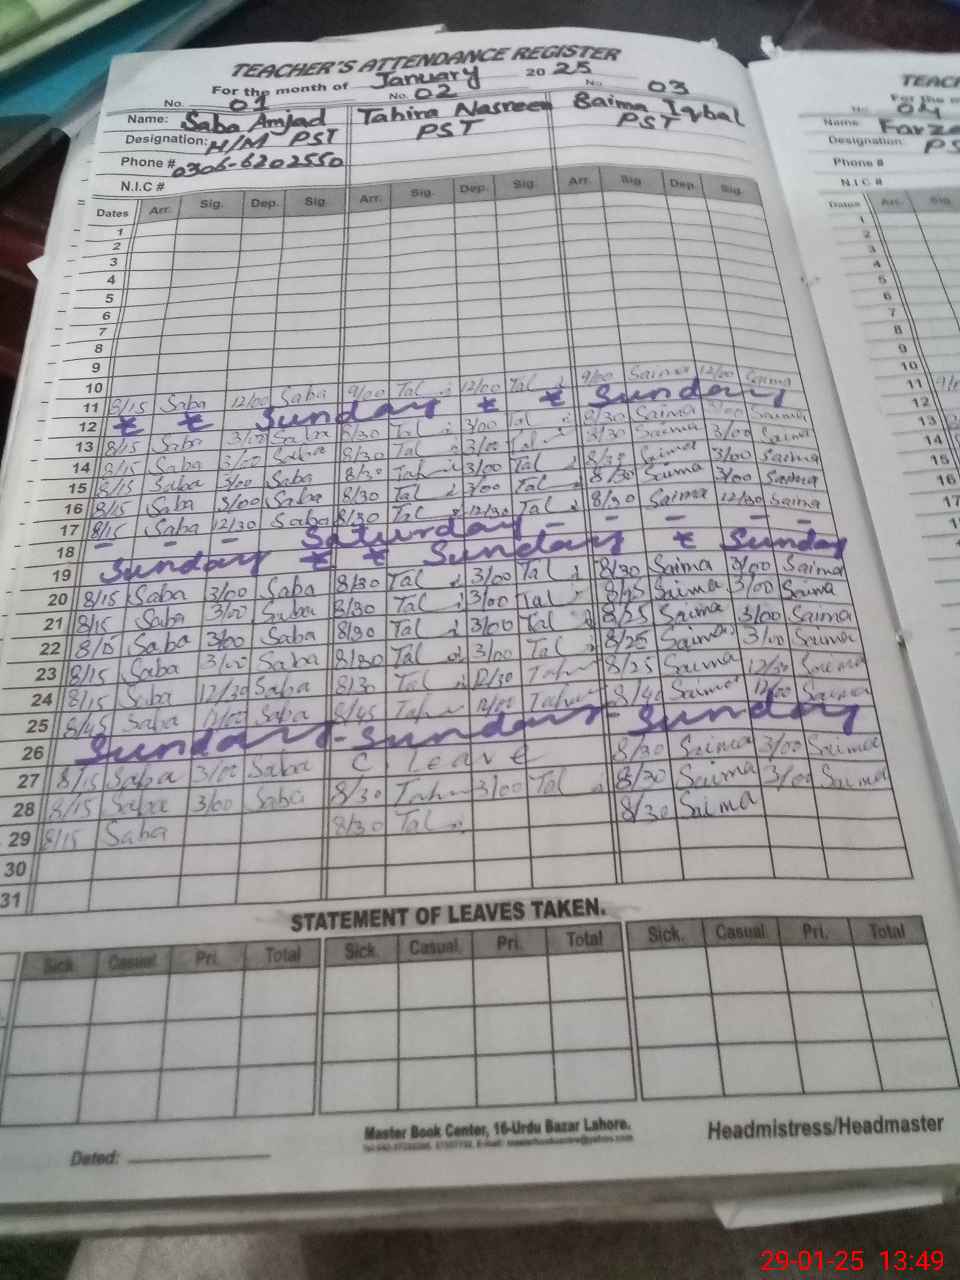 TEACHER'S ATTENDANCE REGISTER
For the month of January 2025
No. 01 No. 02 No. 03
Name: Saba Amjad Tahira Nasreen Saima Iqbal
Designation: H/M PST PST PST
Phone # 0306-6202550
N.I.C #
Dates Arr. Sig. Dep. Sig. Arr. Sig. Dep. Sig. Arr. Sig. Dep. Sig.
1
2
3
4
5
6
7
8
9
10
11 8/15 Saba 12/00 Saba 9/00 Tal 12/00 Tal 9/00 Saima 12/00 Saima
12 * * Sunday * * Sunday
13 8/15 Saba 3/00 Saba 8/30 Tal 3/00 Tal 8/30 Saima 3/00 Saima
14 8/15 Saba 3/00 Saba 8/30 Tal 3/00 Tal 8/30 Saima 3/00 Saima
15 8/15 Saba 3/00 Saba 8/30 Tah 3/00 Tal 8/30 Saima 3/00 Saima
16 8/15 Saba 3/00 Saba 8/30 Tal 3/00 Tal 8/30 Saima 3/00 Saima
17 8/15 Saba 12/30 Saba 8/30 Tal 12/30 Tal 8/30 Saima 12/30 Saima
18 - - - Saturday - - - - -
19 Sunday * * Sunday * Sunday
20 8/15 Saba 3/00 Saba 8/30 Tal 3/00 Tal 8/30 Saima 3/00 Saima
21 8/15 Saba 3/00 Saba 8/30 Tal 3/00 Tal 8/25 Saima 3/00 Saima
22 8/15 Saba 3/00 Saba 8/30 Tal 3/00 Tal 8/25 Saima 3/00 Saima
23 8/15 Saba 3/00 Saba 8/30 Tal 3/00 Tal 8/25 Saima 3/00 Saima
24 8/15 Saba 12/30 Saba 8/30 Tal 12/30 Tah 8/25 Saima 12/30 Saima
25 8/45 Saba 12/00 Saba 8/45 Tah 12/00 Tah 8/40 Saima 12/00 Saima
26 Sunday - Sunday - Sunday
27 8/15 Saba 3/00 Saba C. Leave 8/30 Saima 3/00 Saima
28 8/15 Saba 3/00 Saba 8/30 Tah 3/00 Tal 8/30 Saima 3/00 Saima
29 8/15 Saba 8/30 Tal 8/30 Saima
30
31
STATEMENT OF LEAVES TAKEN.
Sick. Casual Pri. Total Sick. Casual. Pri. Total Sick. Casual Pri. Total
Master Book Center, 16-Urdu Bazar Lahore.
Dated: Headmistress/Headmaster
TEACH
No. 04
Name: Farza
Designation: PS
Phone #
N.I.C #
Dates Arr. Sig.
1
2
3
4
5
6
7
8
9
10
11
12
13
14
15
16
17
29-01-25 13:49